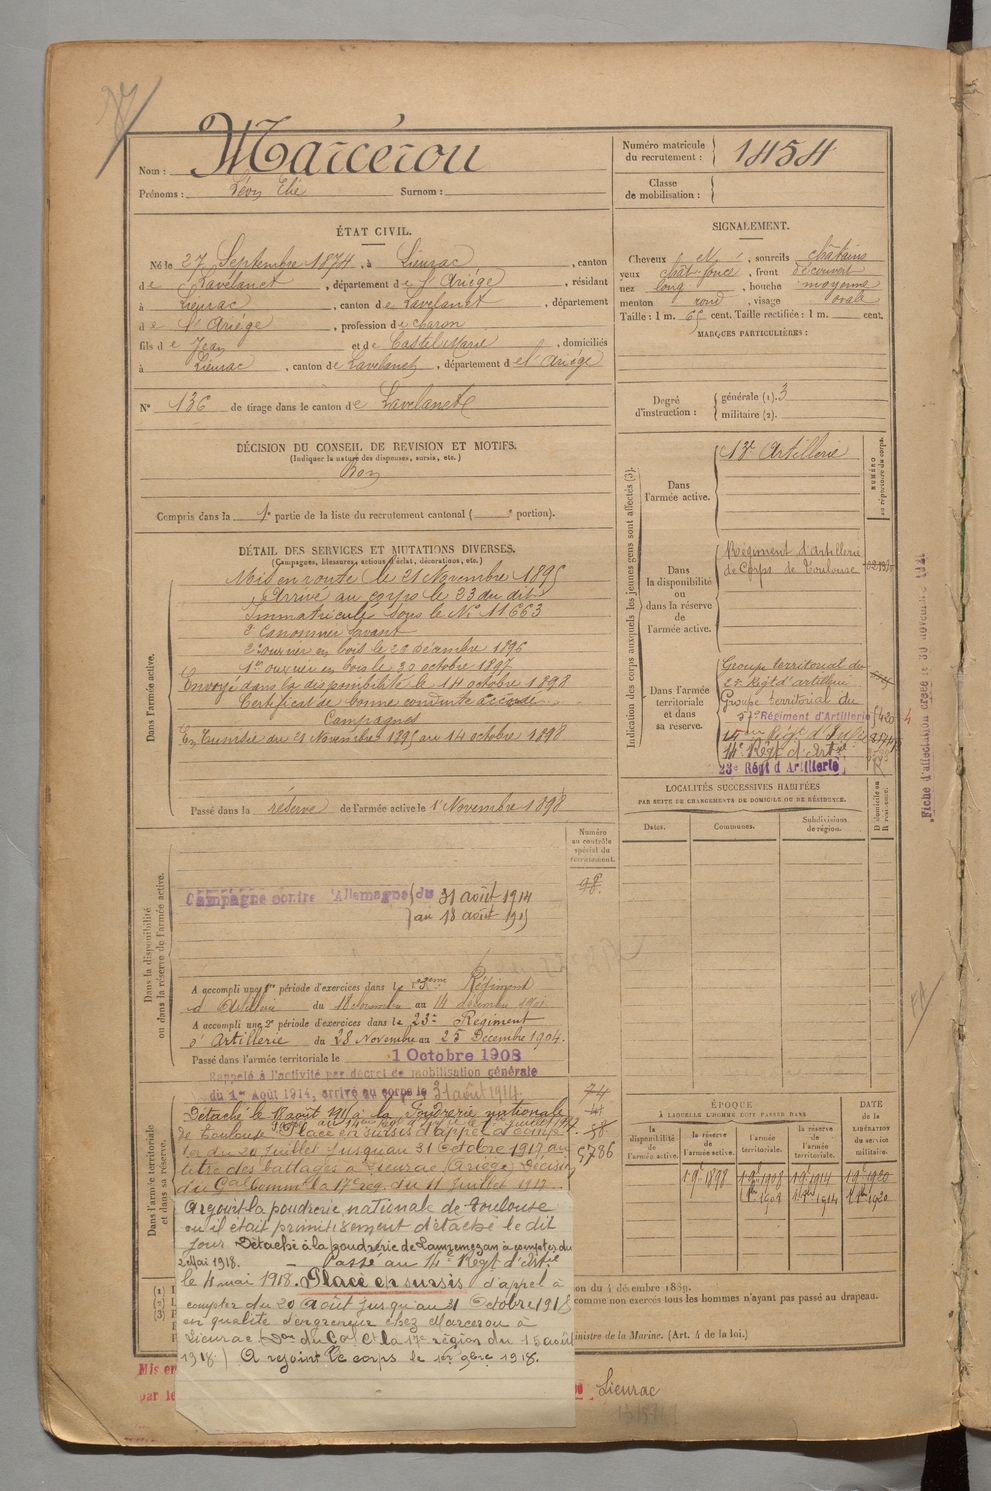 Nom : Marcerou
Prénoms : Léon Elie Surnom :
Numéro matricule du recrutement : 1454
Classe de mobilisation :
ÉTAT CIVIL.
Né le 27 Septembre 1874, à Lieurac, canton
de Lavelanet, département de l'Ariége, résidant
à Lieurac, canton de Lavelanet, département
de l'Ariége, profession de charon
fils de Jean et de Castel Marie, domiciliés
à Lieurac, canton de Lavelanet, département de l'Ariége
N° 136 de tirage dans le canton de Lavelanet
SIGNALEMENT.
Cheveux, sourcils châtains
yeux chât foncé, front découvert
nez long, bouche moyenne
menton rond, visage ovale
Taille : 1 m. 65 cent. Taille rectifiée : 1 m. cent.
MARQUES PARTICULIÈRES :
Degré d'instruction : générale (1). 3
militaire (2).
DÉCISION DU CONSEIL DE REVISION ET MOTIFS.
(Indiquer la nature des dispenses, sursis, etc.)
Bon
Compris dans la 1e partie de la liste du recrutement cantonal ( e portion).
DÉTAIL DES SERVICES ET MUTATIONS DIVERSES.
(Campagnes, blessures, actions d'éclat, décorations, etc.)
Dans l'armée active.
Mis en route le 21 Novembre 1895
Arrivé au corps le 23 du dit
Immatriculé sous le N° 11663
2e Canonnier servant
2e ouvrier en bois le 20 décembre 1896
1er ouvrier en bois le 20 octobre 1897
Envoyé dans la disponibilité le 14 octobre 1898
Certificat de bonne conduite accordé
Campagnes
En Tunisie du 21 Novembre 1895 au 14 octobre 1898
Passé dans la réserve de l'armée active le 1er Novembre 1898
Indication des corps auxquels les jeunes gens sont affectés (3).
NUMÉRO au répertoire du corps.
Dans l'armée active.
13e Artillerie
Dans la disponibilité ou dans la réserve de l'armée active.
Régiment d'Artillerie
de Corps de Toulouse
Dans l'armée territoriale et dans sa réserve.
Groupe territorial du
23e Régt d'artillerie
Groupe territorial du
57e Régiment d'Artillerie
14e Régt d'Art
23e Régt d'Artillerie
Fiche d'affectation créée le 30 novembre 1921
LOCALITÉS SUCCESSIVES HABITÉES
PAR SUITE DE CHANGEMENTS DE DOMICILE OU DE RÉSIDENCE.
Dates. Communes. Subdivisions de région. D domicile ou R résidence.
Dans la disponibilité ou dans la réserve de l'armée active.
Numéro au contrôle spécial du recrutement.
98
Campagne contre l'Allemagne du 31 août 1914
au 18 août 1915
A accompli une 1re période d'exercices dans le 23ème Régiment
d'Artillerie du
A accompli une 2e période d'exercices dans le 23e Régiment
d'Artillerie du 28 Novembre au 25 Décembre 1904.
Passé dans l'armée territoriale le 1 Octobre 1908
Rappelé à l'activité par décret de mobilisation générale
du 1er Août 1914, arrivé au corps le 31 août 1914
Dans l'armée territoriale et dans sa réserve.
Détaché le 18 août 1915 à la Poudrerie nationale
de Toulouse
Placé en sursis d'appel à comp-
ter du 20 Juillet jusqu'au 31 Octobre 1917 au
titre des battages à Lieurac (Ariège) Décision
du Gal Commt la 17e reg. du 11 Juillet 1917
5786
A rejoint la poudrerie nationale de Toulouse
ou il était primitivement détaché le dit
jour. Détaché à la poudrerie de Lannemezan à compter du
2 Mai 1918. — Passé au 14e Régt d'Artie
le 4 mai 1918. Placé en sursis d'appel à
compter du 20 Août jusqu'au 31 Octobre 1918
en qualité d'engreneur chez Marcerou à
Lieurac (Don du Gal Ct la 17e région du 15 août
1918.) A rejoint le corps le 1er 9bre 1918.
ÉPOQUE
À LAQUELLE L'HOMME DOIT PASSER DANS
DATE de la LIBÉRATION du service militaire.
la disponibilité de l'armée active.
la réserve de l'armée active.
l'armée territoriale.
la réserve de l'armée territoriale.
1 9bre 1898
1 8bre 1908
1 8bre 1914
1 8bre 1920
ion du 4 décembre 1889.
comme non exercés tous les hommes n'ayant pas passé au drapeau.
inistre de la Marine. (Art. 4 de la loi.)
Mis en
par le
Lieurac